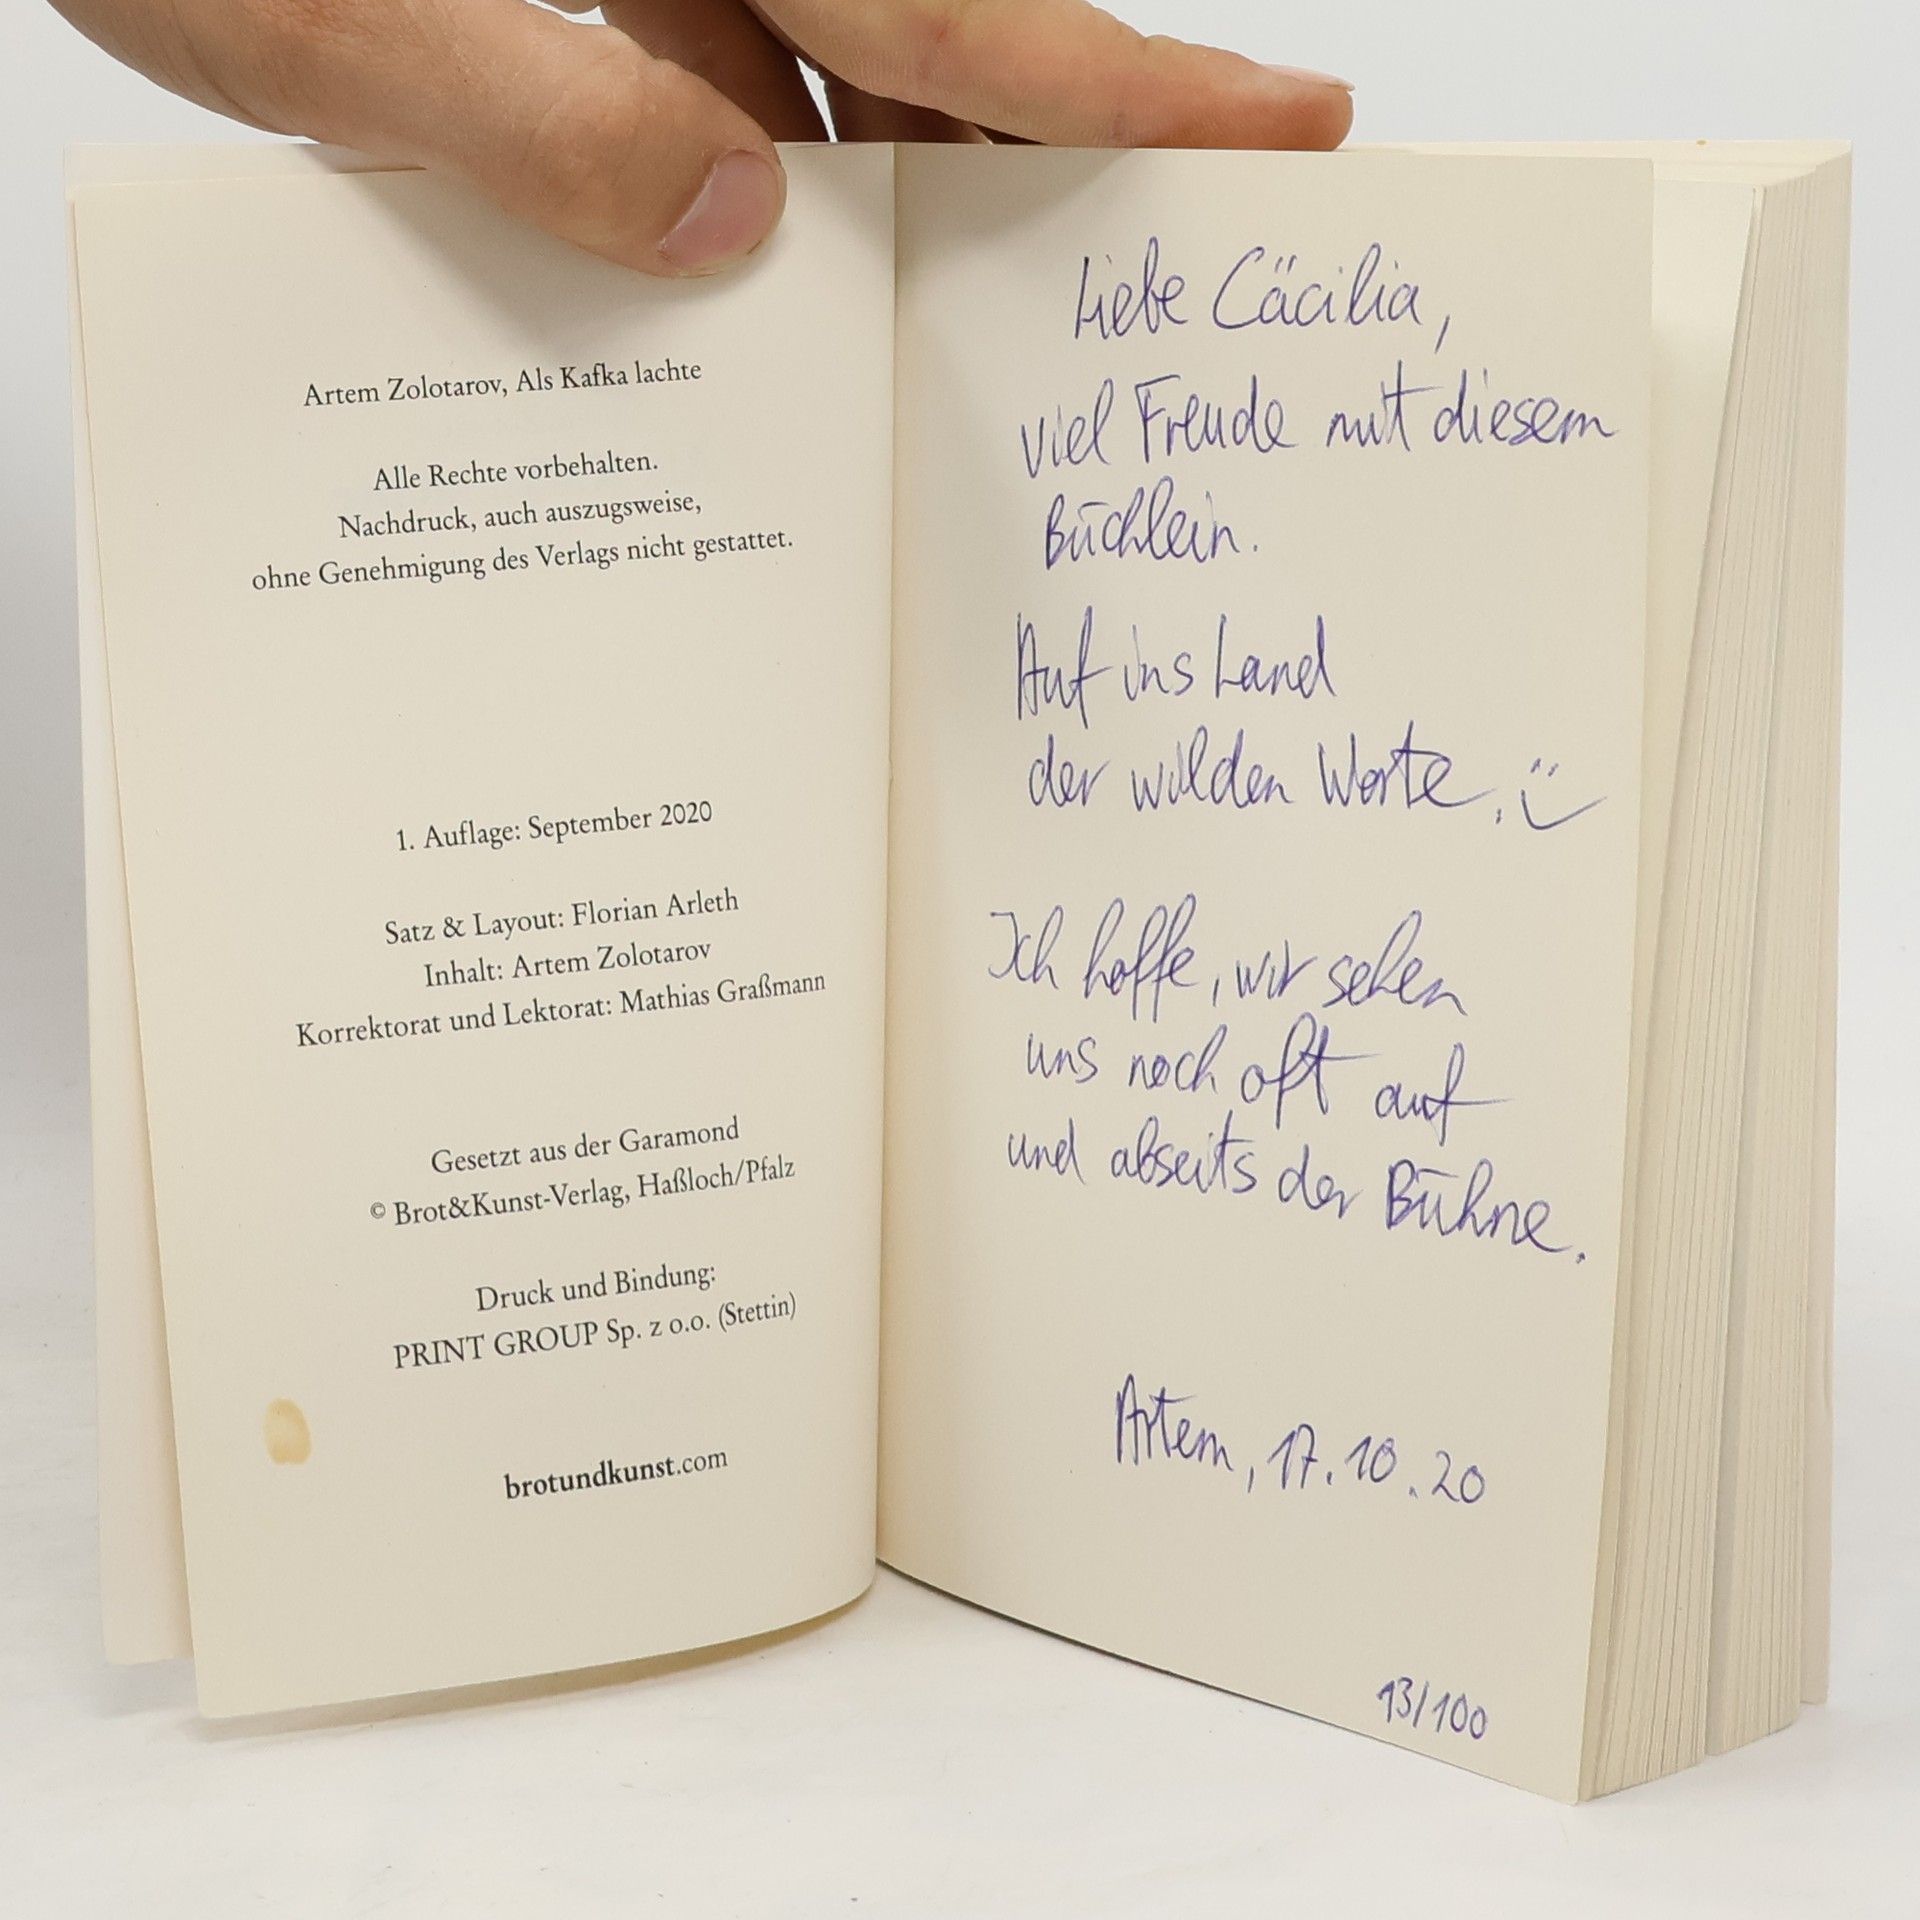 Artem Zolotarov, Als Kafka lachte
Alle Rechte vorbehalten.
Nachdruck, auch auszugsweise,
ohne Genehmigung des Verlags nicht gestattet.
1. Auflage: September 2020
Satz & Layout: Florian Arleth
Inhalt: Artem Zolotarov
Korrektorat und Lektorat: Mathias Graßmann
Gesetzt aus der Garamond
© Brot&Kunst-Verlag, Haßloch/Pfalz
Druck und Bindung:
PRINT GROUP Sp. z o.o. (Stettin)
brotundkunst.com
Liebe Cäcilia,
viel Freude mit diesem
Büchlein.
Auf ins Land
der wilden Worte.
Ich hoffe, wir sehen
uns noch oft auf
und abseits der Bühne.
Artem, 17.10.20
13/100